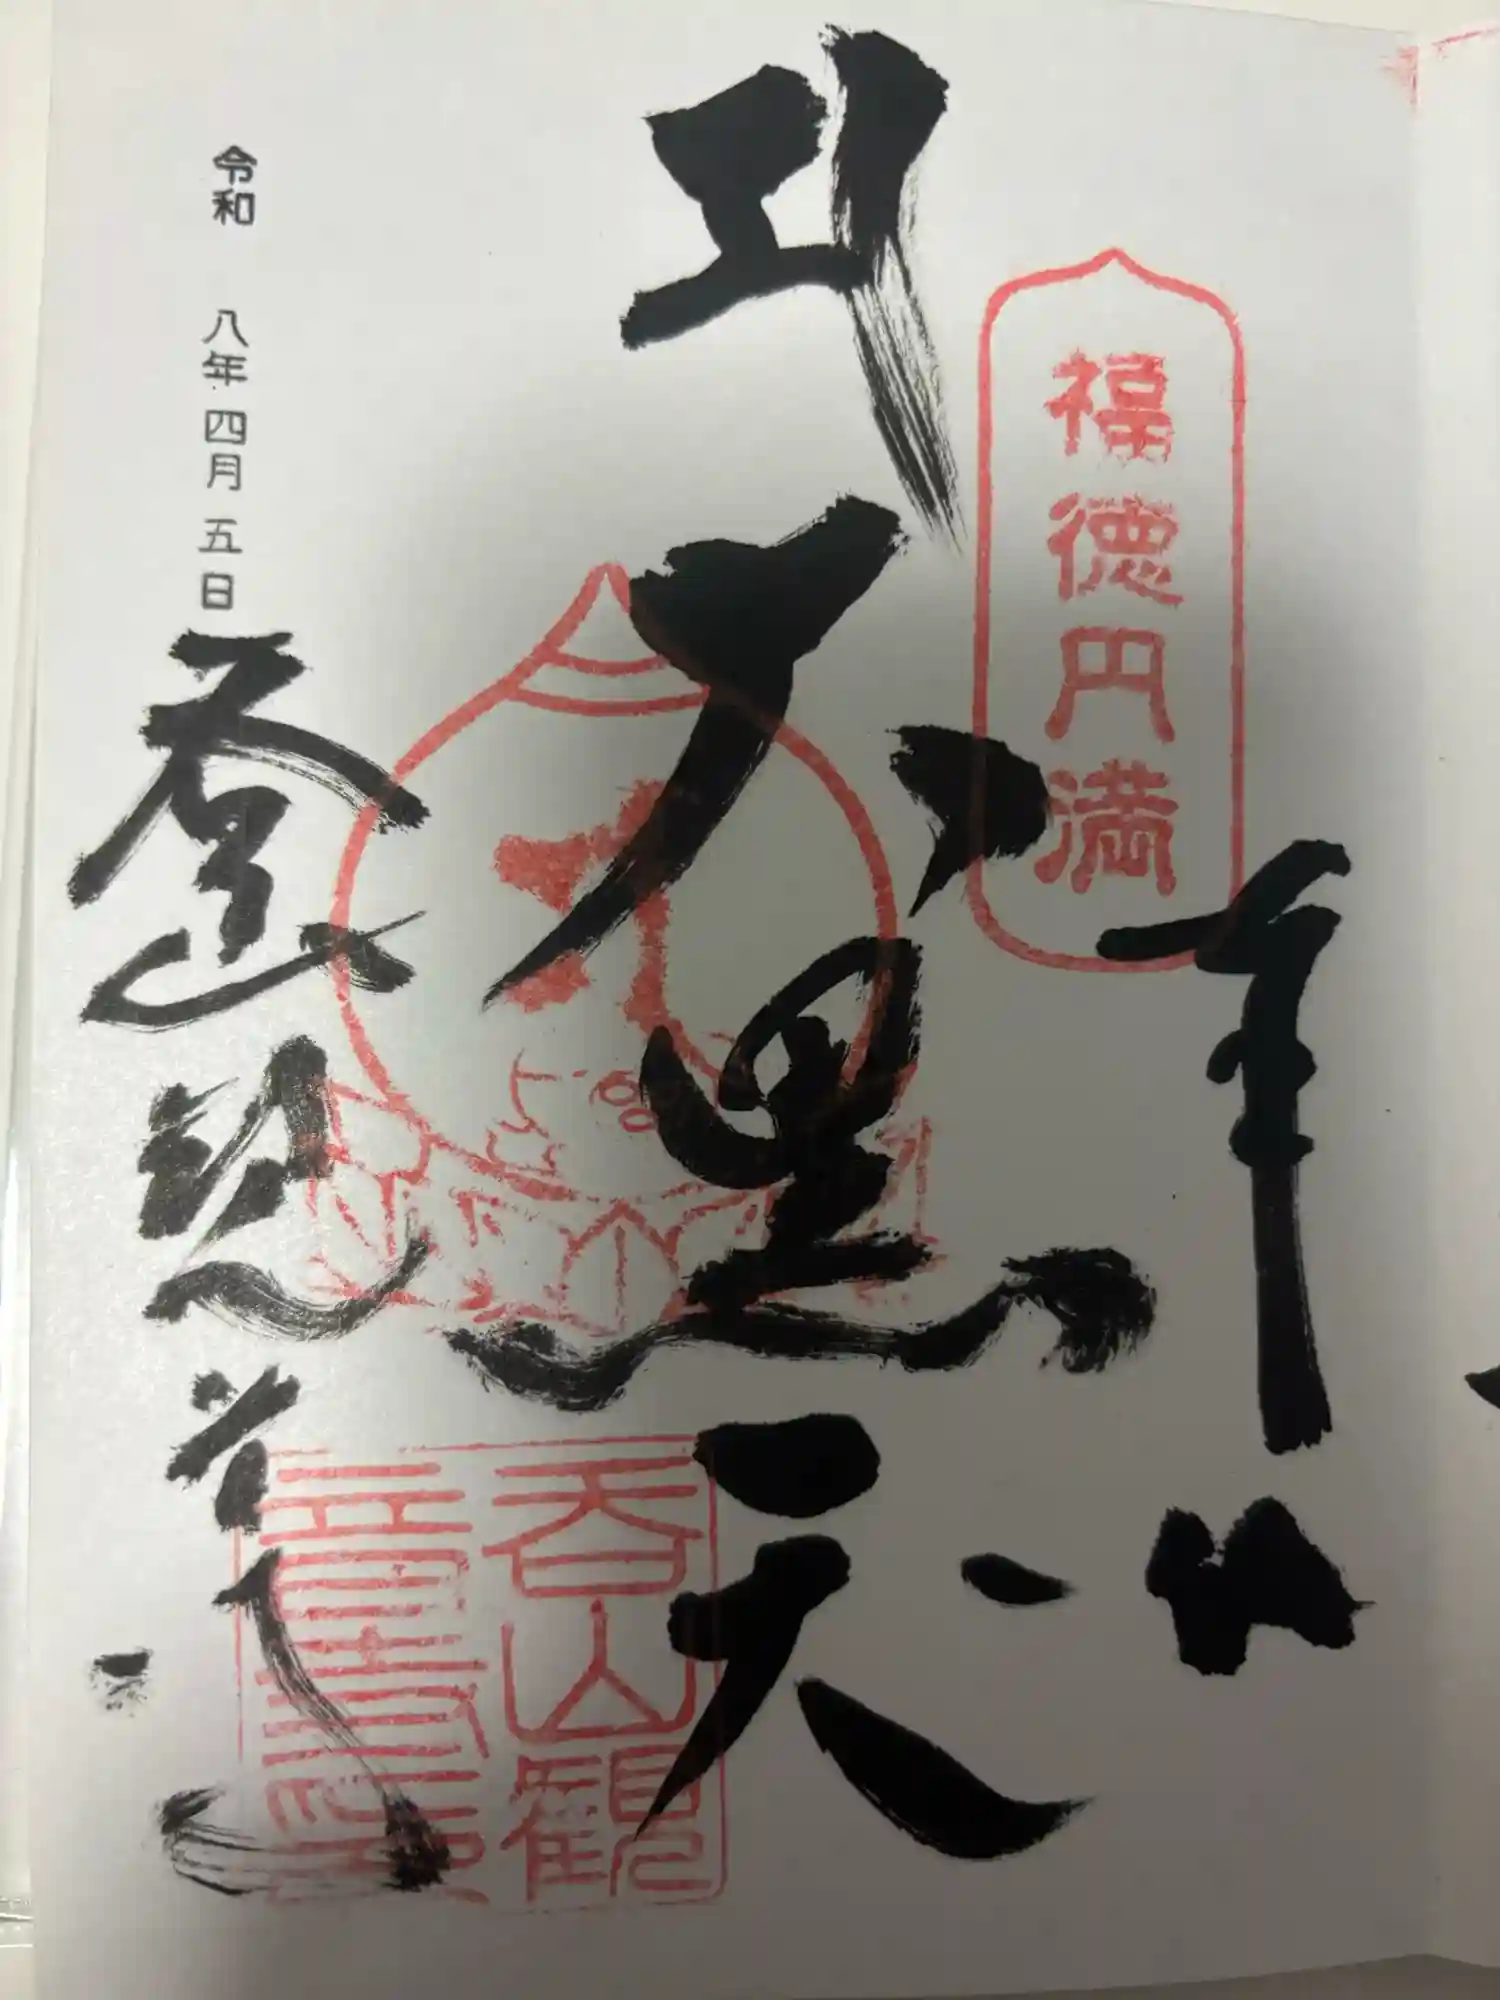 福徳円満
奉
大黒天
呑山觀
音寺
令和 八年 四月 五日
呑山観音寺